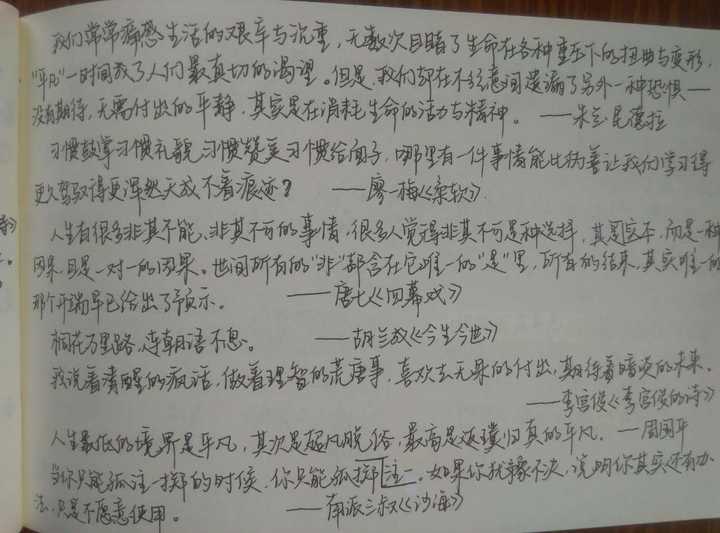 我们常常痛感生活的艰辛与沉重，无数次目睹了生命在各种重压下的扭曲与变形，
"平凡"一时间成了人们最真切的渴望。但是，我们却在不经意间遗漏了另外一种恐惧——
没有期待、无需付出的平静，其实是在消耗生命的活力与精神。——米兰·昆德拉
习惯鼓掌习惯礼貌习惯赞美习惯给面子，哪里有一件事情能比伪善让我们学习得
更久驾驭得更浑然天成不着痕迹？——廖一梅《柔软》
人生有很多非其不能、非其不可的事情，很多人觉得非其不可是种选择，其实不，而是一种
因果，且是一对一的因果。世间所有的"非"都含在它唯一的"是"里，所有的结果，其实唯一的
那个开端早已给出了预示。——唐七《四幕戏》
桐花万里路，连朝语不息。——胡兰成《今生今世》
我说着清醒的疯话，做着理智的荒唐事，喜欢去无果的付出，期待着暗淡的未来。
——李宫俊《李宫俊的诗》
人生最低的境界是平凡，其次是超凡脱俗，最高是返璞归真的平凡。——周国平
当你只能孤注一掷的时候，你只能孤掷注一。如果你犹豫不决，说明你其实还有办
法，只是不愿意使用。——南派三叔《沙海》